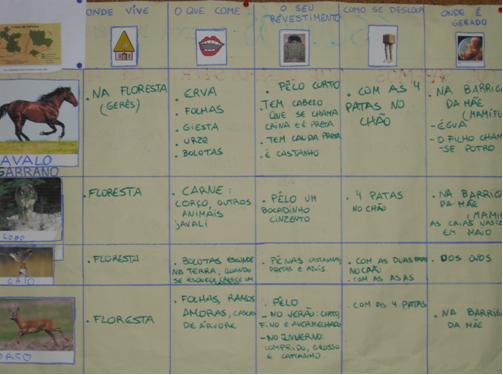 ONDE VIVE
O QUE COME
O SEU
REVESTIMENTO
COMO SE DESLOCA
ONDE É
GERADO
AVALO
GARRANO
. NA FLORESTA
(GERÊS)
. ERVA
. FOLHAS
. GIESTA
. URZE
. BOLOTAS
. PÊLO CURTO
. TEM CABELO
QUE SE CHAMA
CRINA E É PRETA
. TEM CAUDA PRETA
. É CASTANHO
. COM AS 4
PATAS NO
CHÃO
. NA BARRIGA
DA MÃE
- ÉGUA
- O FILHO
-SE POTRO
LOBO
. FLORESTA
. CARNE:
CORÇO, OUTROS
ANIMAIS
JAVALI
. PÊLO UM
BOCADINHO
CINZENTO
. 4 PATAS
NO CHÃO
. NA BARRIGA
DA MÃE
AS CRIAS
EM MAIO
GAIO
. FLORESTA
. BOLOTAS ESCONDE
NA TERRA, QUANDO
SE
. PENAS CASTANHAS,
PRETAS E AZUIS
. COM AS DUAS PATAS
NO CHÃO
. COM AS ASAS
. DOS OVOS
ORÇO
. FLORESTA
. FOLHAS, RAMOS
AMORAS, CASCAS
DE ÁRVORE
. PÊLO
- NO VERÃO: CURTO,
FINO E AVERMELHADO
- NO INVERNO:
COMPRIDO, GROSSO
E CASTANHO
COM AS 4 PATAS
. NA BARRIGA
DA MÃE